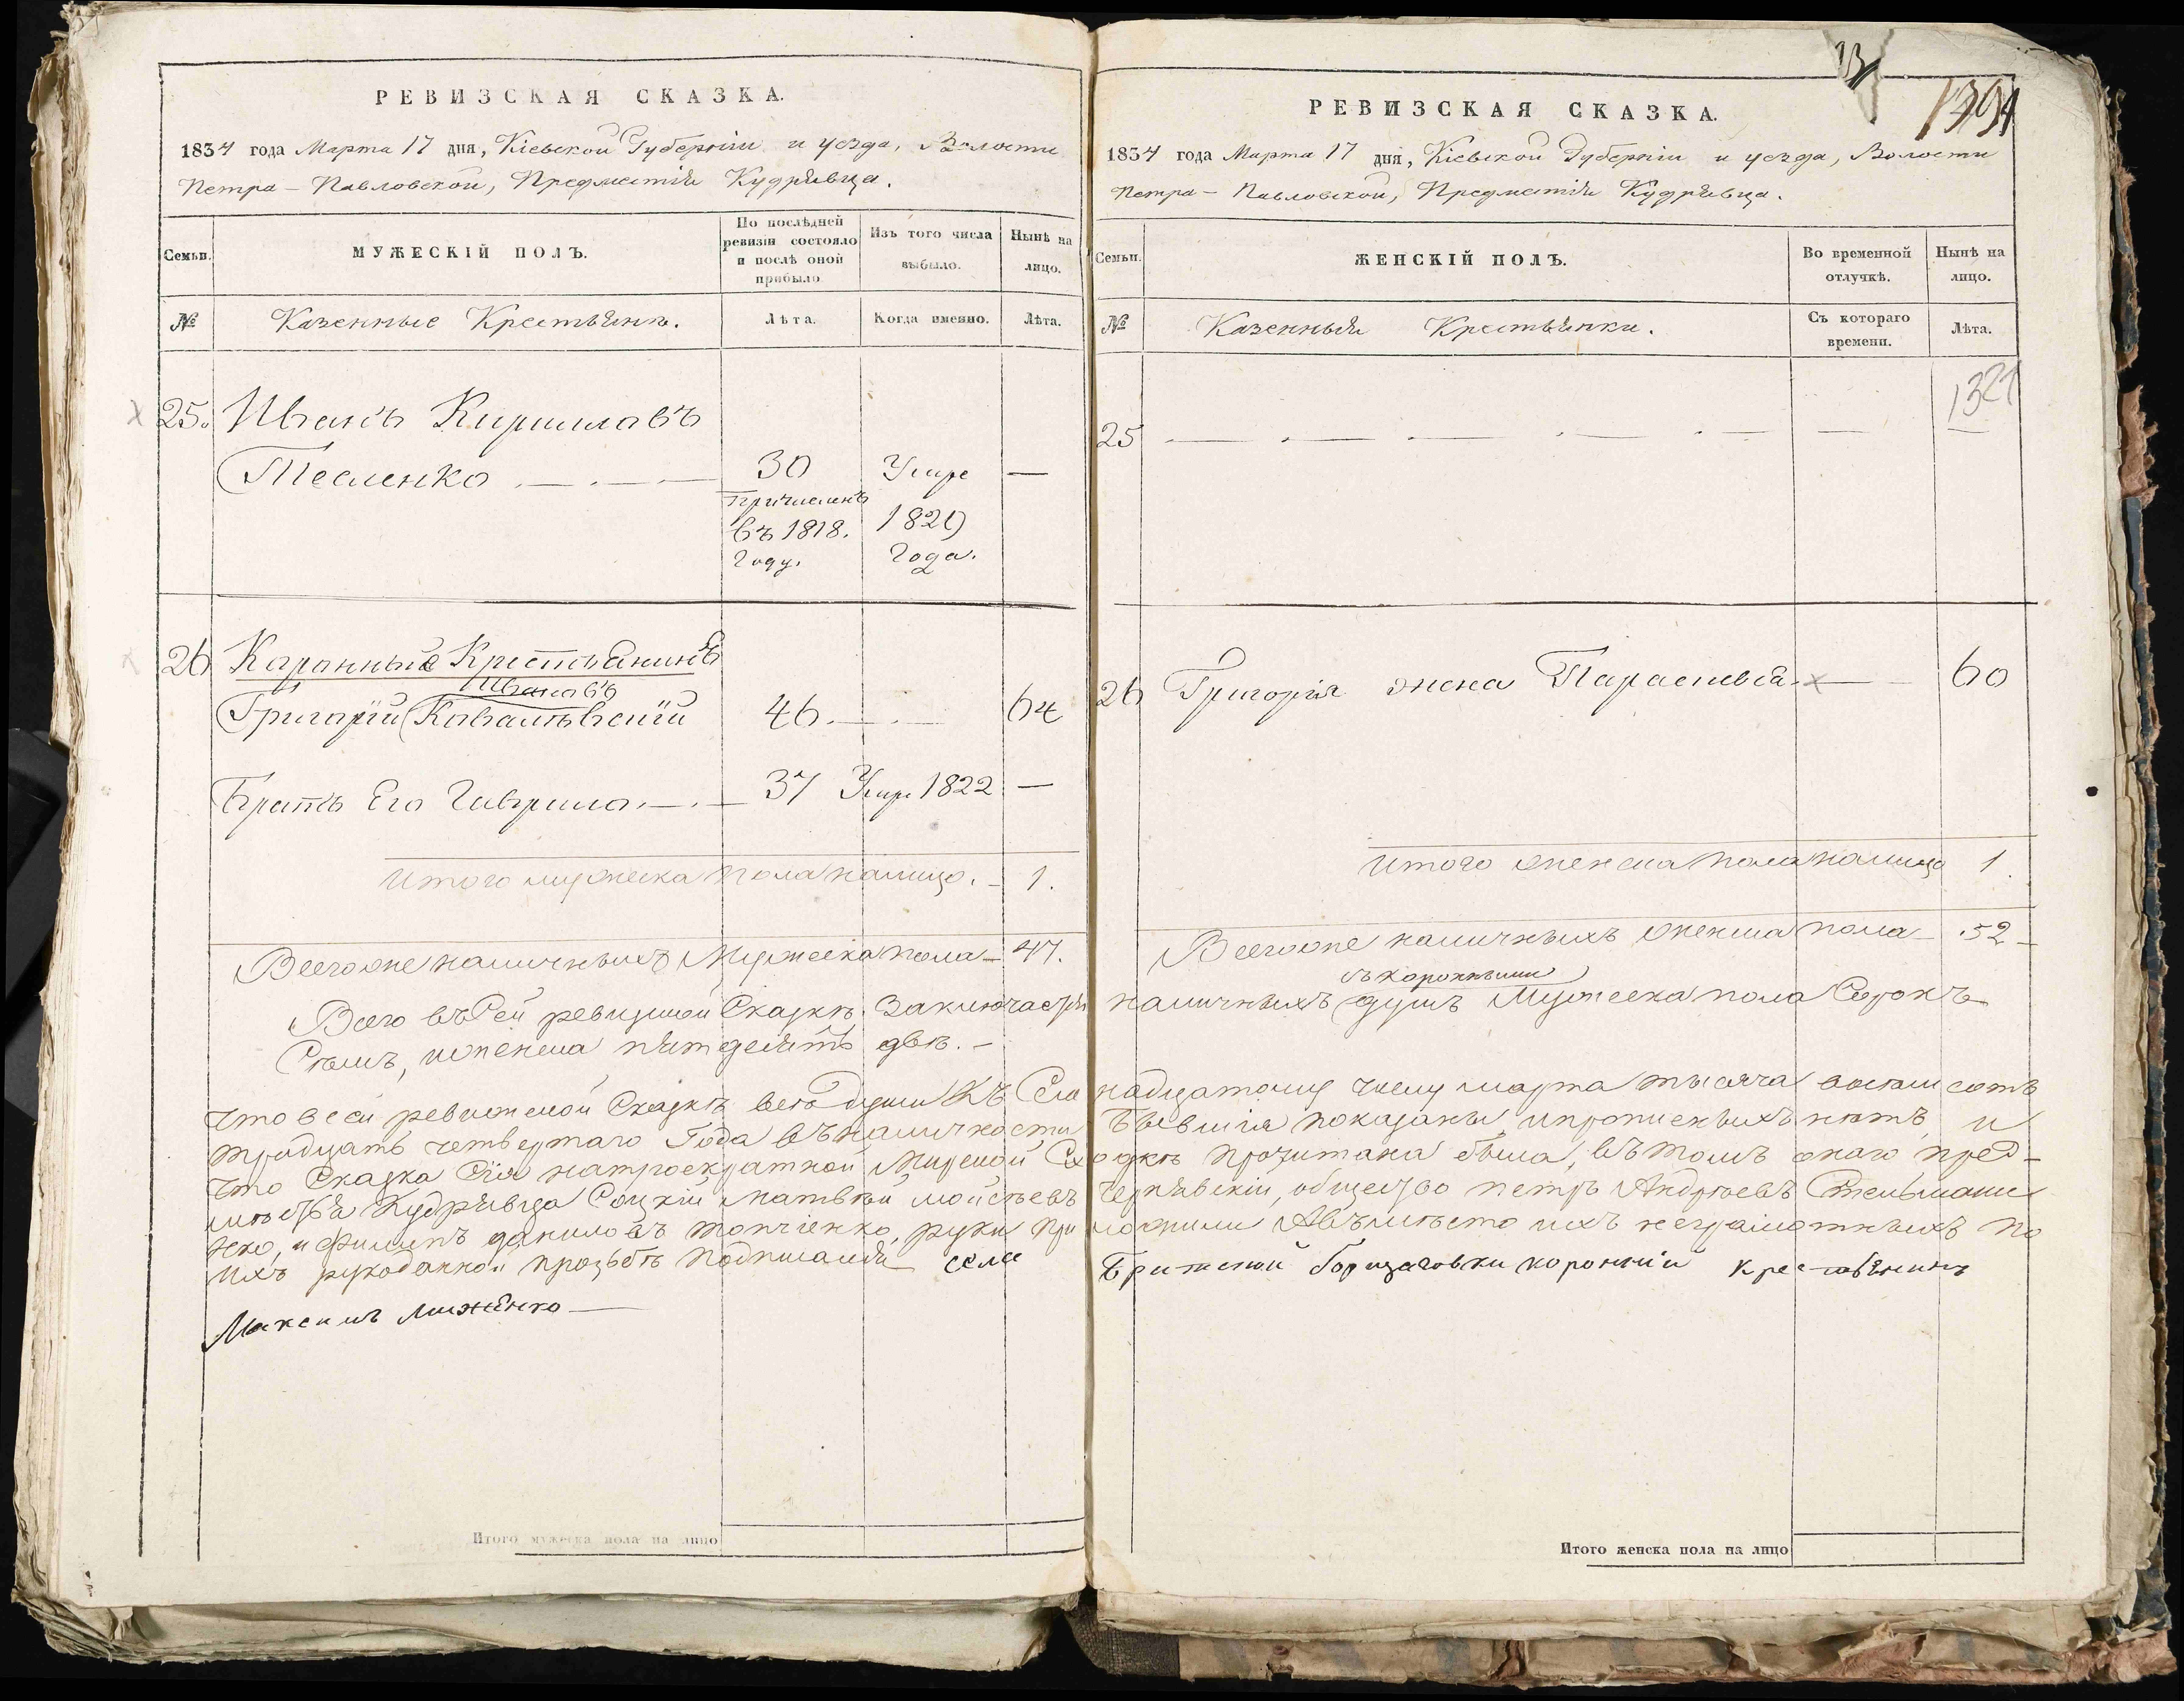 РЕВИЗСКАЯ СКАЗКА.
1834 года Марта 17 дня, Кіевской Губерніи и уезда, Волости
Петра-Павловской, Предместія Кудрявца.
Семьи.
МУЖЕСКІЙ ПОЛЪ.
По послѣдней
ревизіи состояло
и послѣ оной
прибыло
Изъ того числа
выбыло.
Нынѣ на
лицо.
№
Казенные Крестьяне.
Лѣта.
Когда именно.
Лѣта.
25. Иванъ Кириловъ
Тесленко 30 Умре —
Причисленъ
въ 1818.
Году.
1829
Года.
26 Каронные Крестьянинъ
Ивановъ
Григорій Ковалевскій 46 64
Братъ Его Гаврило 37 Умре 1822 —
Итого мужеска пола налицо. 1.
Всегоже наличныхъ Мужеска пола 47.
Итого мужеска пола на лицо
13
1394
РЕВИЗСКАЯ СКАЗКА.
1834 года Марта 17 дня, Кіевской Губерніи и уезда, Волости
Петра-Павловской, Предместія Кудрявца.
Семьи.
ЖЕНСКІЙ ПОЛЪ.
Во временной
отлучкѣ.
Нынѣ на
лицо.
№
Казенныя Крестьянки.
Съ котораго
времени.
Лѣта.
1321
25 — — — — — — —
26 Григорія жена Парасковія 60
Итого женска пола налицо 1.
Всегоже наличныхъ женска пола 52
съ коронными
Всего въ Сей ревизской Сказкѣ Заключается наличныхъ душъ Мужеска пола Сорокъ
Семъ, и женска пятдесятъ две.
что всеи ревизской Сказкѣ все души Къ Семнадцатому числу марта тысяча восемсотъ
тридцать четвертаго Года въ наличности бывшія показаны, и прописныхъ нетъ, и
что Сказка Сія натроекратной Мирской Сходкѣ прочитана была, въ томъ онаго пред-
местья Кудрявца Соцкій Матвѣй Мойсеевъ Чернявскій, общество Петръ Андреевъ
и Филипъ Даниловъ Топчіенко, руки приложили Авъместо ихъ неграмотныхъ по
ихъ рукоданной прозьбѣ подписался села Братской борщаговки коронній крестьянинъ
Максимъ
Итого женска пола на лицо